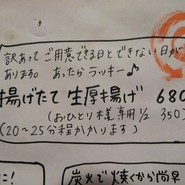 訳あって ご用意できる日とできない日が
あります。あったらラッキー♪
揚げたて 生厚揚げ 680
(おひとり様専用 1/2 350)
(20～25分程かかります)
に!
炭火で焼くから尚早